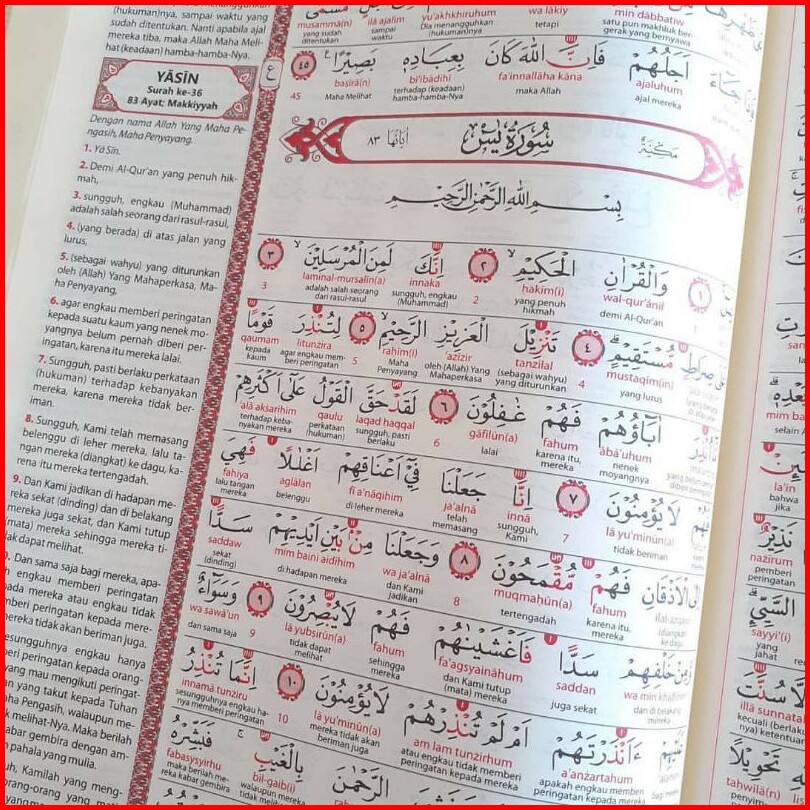 (hukuman)nya, sampai waktu yang
sudah ditentukan. Nanti apabila ajal
mereka tiba, maka Allah Maha Meli-
hat (keadaan) hamba-hamba-Nya.
YĀSĪN
Surah ke-36
83 Ayat; Makkiyyah
Dengan nama Allah Yang Maha Pe-
ngasih, Maha Penyayang.
1. Yā Sīn.
2. Demi Al-Qur'an yang penuh hik-
mah,
3. sungguh, engkau (Muhammad)
adalah salah seorang dari rasul-rasul,
4. (yang berada) di atas jalan yang
lurus,
5. (sebagai wahyu) yang diturunkan
oleh (Allah) Yang Mahaperkasa, Ma-
ha Penyayang,
6. agar engkau memberi peringatan
kepada suatu kaum yang nenek mo-
yangnya belum pernah diberi per-
ingatan, karena itu mereka lalai.
7. Sungguh, pasti berlaku perkataan
(hukuman) terhadap kebanyakan
mereka, karena mereka tidak ber-
iman.
8. Sungguh, Kami telah memasang
belenggu di leher mereka, lalu ta-
ngan mereka (diangkat) ke dagu, ka-
rena itu mereka tertengadah.
9. Dan Kami jadikan di hadapan me-
reka sekat (dinding) dan di belakang
mereka juga sekat, dan Kami tutup
(mata) mereka sehingga mereka ti-
dak dapat melihat.
Dan sama saja bagi mereka, apa-
engkau memberi peringatan
pada mereka atau engkau tidak
mberi peringatan kepada mere-
mereka tidak akan beriman juga.
esungguhnya engkau hanya
beri peringatan kepada orang-
yang mau mengikuti peringat-
n yang takut kepada Tuhan
ha Pengasih, walaupun me-
k melihat-Nya. Maka berilah
abar gembira dengan am-
pahala mulia.
h, Kamilah yang meng-
orang-orang yang mati
musammā(n) ilā ajalim yu'akhkhiruhum wa lākiy min dābbatiw
yang sudah ditentukan sampai waktu Dia menangguhkan (hukuman)nya tetapi satu pun makhluk ber- gerak yang bernyawa
اَجَلُهُمْ فَاِنَّ اللّٰهَ كَانَ بِعِبَادِهٖ بَصِيْرًا ٤٥
ajaluhum fa'innallāha kāna bi'ibādihī baṣīrā(n)
ajal mereka maka Allah terhadap (keadaan) hamba-hamba-Nya Maha Melihat 45
مَكِّيَّةٌ سُوْرَةُ يٰسۤ اٰيَاتُهَا ٨٣
بِسْمِ اللّٰهِ الرَّحْمٰنِ الرَّحِيْمِ
١ وَالْقُرْاٰنِ الْحَكِيْمِ ٢ اِنَّكَ لَمِنَ الْمُرْسَلِيْنَ ٣
wal-qur'ānil ḥakīm(i) innaka laminal-mursalīn(a)
demi Al-Qur'an yang penuh hikmah 2 sungguh, engkau (Muhammad) adalah salah seorang dari rasul-rasul 3
صِرَاطٍ مُّسْتَقِيْمٍ ٤ تَنْزِيْلَ الْعَزِيْزِ الرَّحِيْمِ ٥ لِتُنْذِرَ قَوْمًا
mustaqīm(in) tanzīlal 'azīzir raḥīm(i) litunżira qaumam
yang lurus 4 (sebagai wahyu) yang diturunkan oleh (Allah) Yang Mahaperkasa Maha Penyayang 5 agar engkau mem- beri peringatan kepada kaum
اٰبَاۤؤُهُمْ فَهُمْ غٰفِلُوْنَ ٦ لَقَدْ حَقَّ الْقَوْلُ عَلٰٓى اَكْثَرِهِمْ
ābā'uhum fahum gāfilūn(a) laqad ḥaqqal qaulu 'alā akṡarihim
nenek moyangnya karena itu, mereka lalai 6 sungguh, pasti berlaku perkataan (hukuman) terhadap keba- nyakan mereka
فَهُمْ لَا يُؤْمِنُوْنَ ٧ اِنَّا جَعَلْنَا فِيْٓ اَعْنَاقِهِمْ اَغْلٰلًا فَهِيَ
lā yu'minūn(a) innā ja'alnā fī a'nāqihim aglālan fahiya
tidak beriman 7 sungguh, Kami telah memasang di leher mereka belenggu lalu tangan mereka
اِلَى الْاَذْقَانِ فَهُمْ مُّقْمَحُوْنَ ٨ وَجَعَلْنَا مِنْۢ بَيْنِ اَيْدِيْهِمْ سَدًّا
fahum muqmaḥūn(a) wa ja'alnā mim baini aidīhim saddaw
karena itu, mereka tertengadah 8 dan Kami jadikan di hadapan mereka sekat (dinding)
وَّمِنْ خَلْفِهِمْ سَدًّا فَاَغْشَيْنٰهُمْ فَهُمْ لَا يُبْصِرُوْنَ ٩ وَسَوَاۤءٌ
wa min khalfihim saddan fa'agsyaināhum fahum lā yubṣirūn(a) wa sawā'un
dan di belakang mereka juga sekat dan Kami tutup (mata) mereka sehingga mereka tidak dapat melihat 9 dan sama saja
ءَاَنْذَرْتَهُمْ اَمْ لَمْ تُنْذِرْهُمْ لَا يُؤْمِنُوْنَ ١٠ اِنَّمَا تُنْذِرُ
a'anżartahum am lam tunżirhum lā yu'minūn(a) innamā tunżiru
apakah engkau memberi peringatan kepada mereka atau engkau tidak memberi peringatan kepada mereka mereka tidak akan beriman juga 10 sesungguhnya engkau ha- nya memberi peringatan
الرَّحْمٰنَ بِالْغَيْبِ فَبَشِّرْهُ
bil-gaib(i) fabasysyirhu
walaupun mereka tidak melihat-Nya maka berilah me- reka kabar gembira
نَذِيْرٌ
nażīrum
pemberi peringatan
السَّيِّئِ
sayyi'(i)
yang jahat
illā sunnata
kecuali (berlaku- nya) ketentuan
تَحْوِيْلًا
taḥwīlā(n)